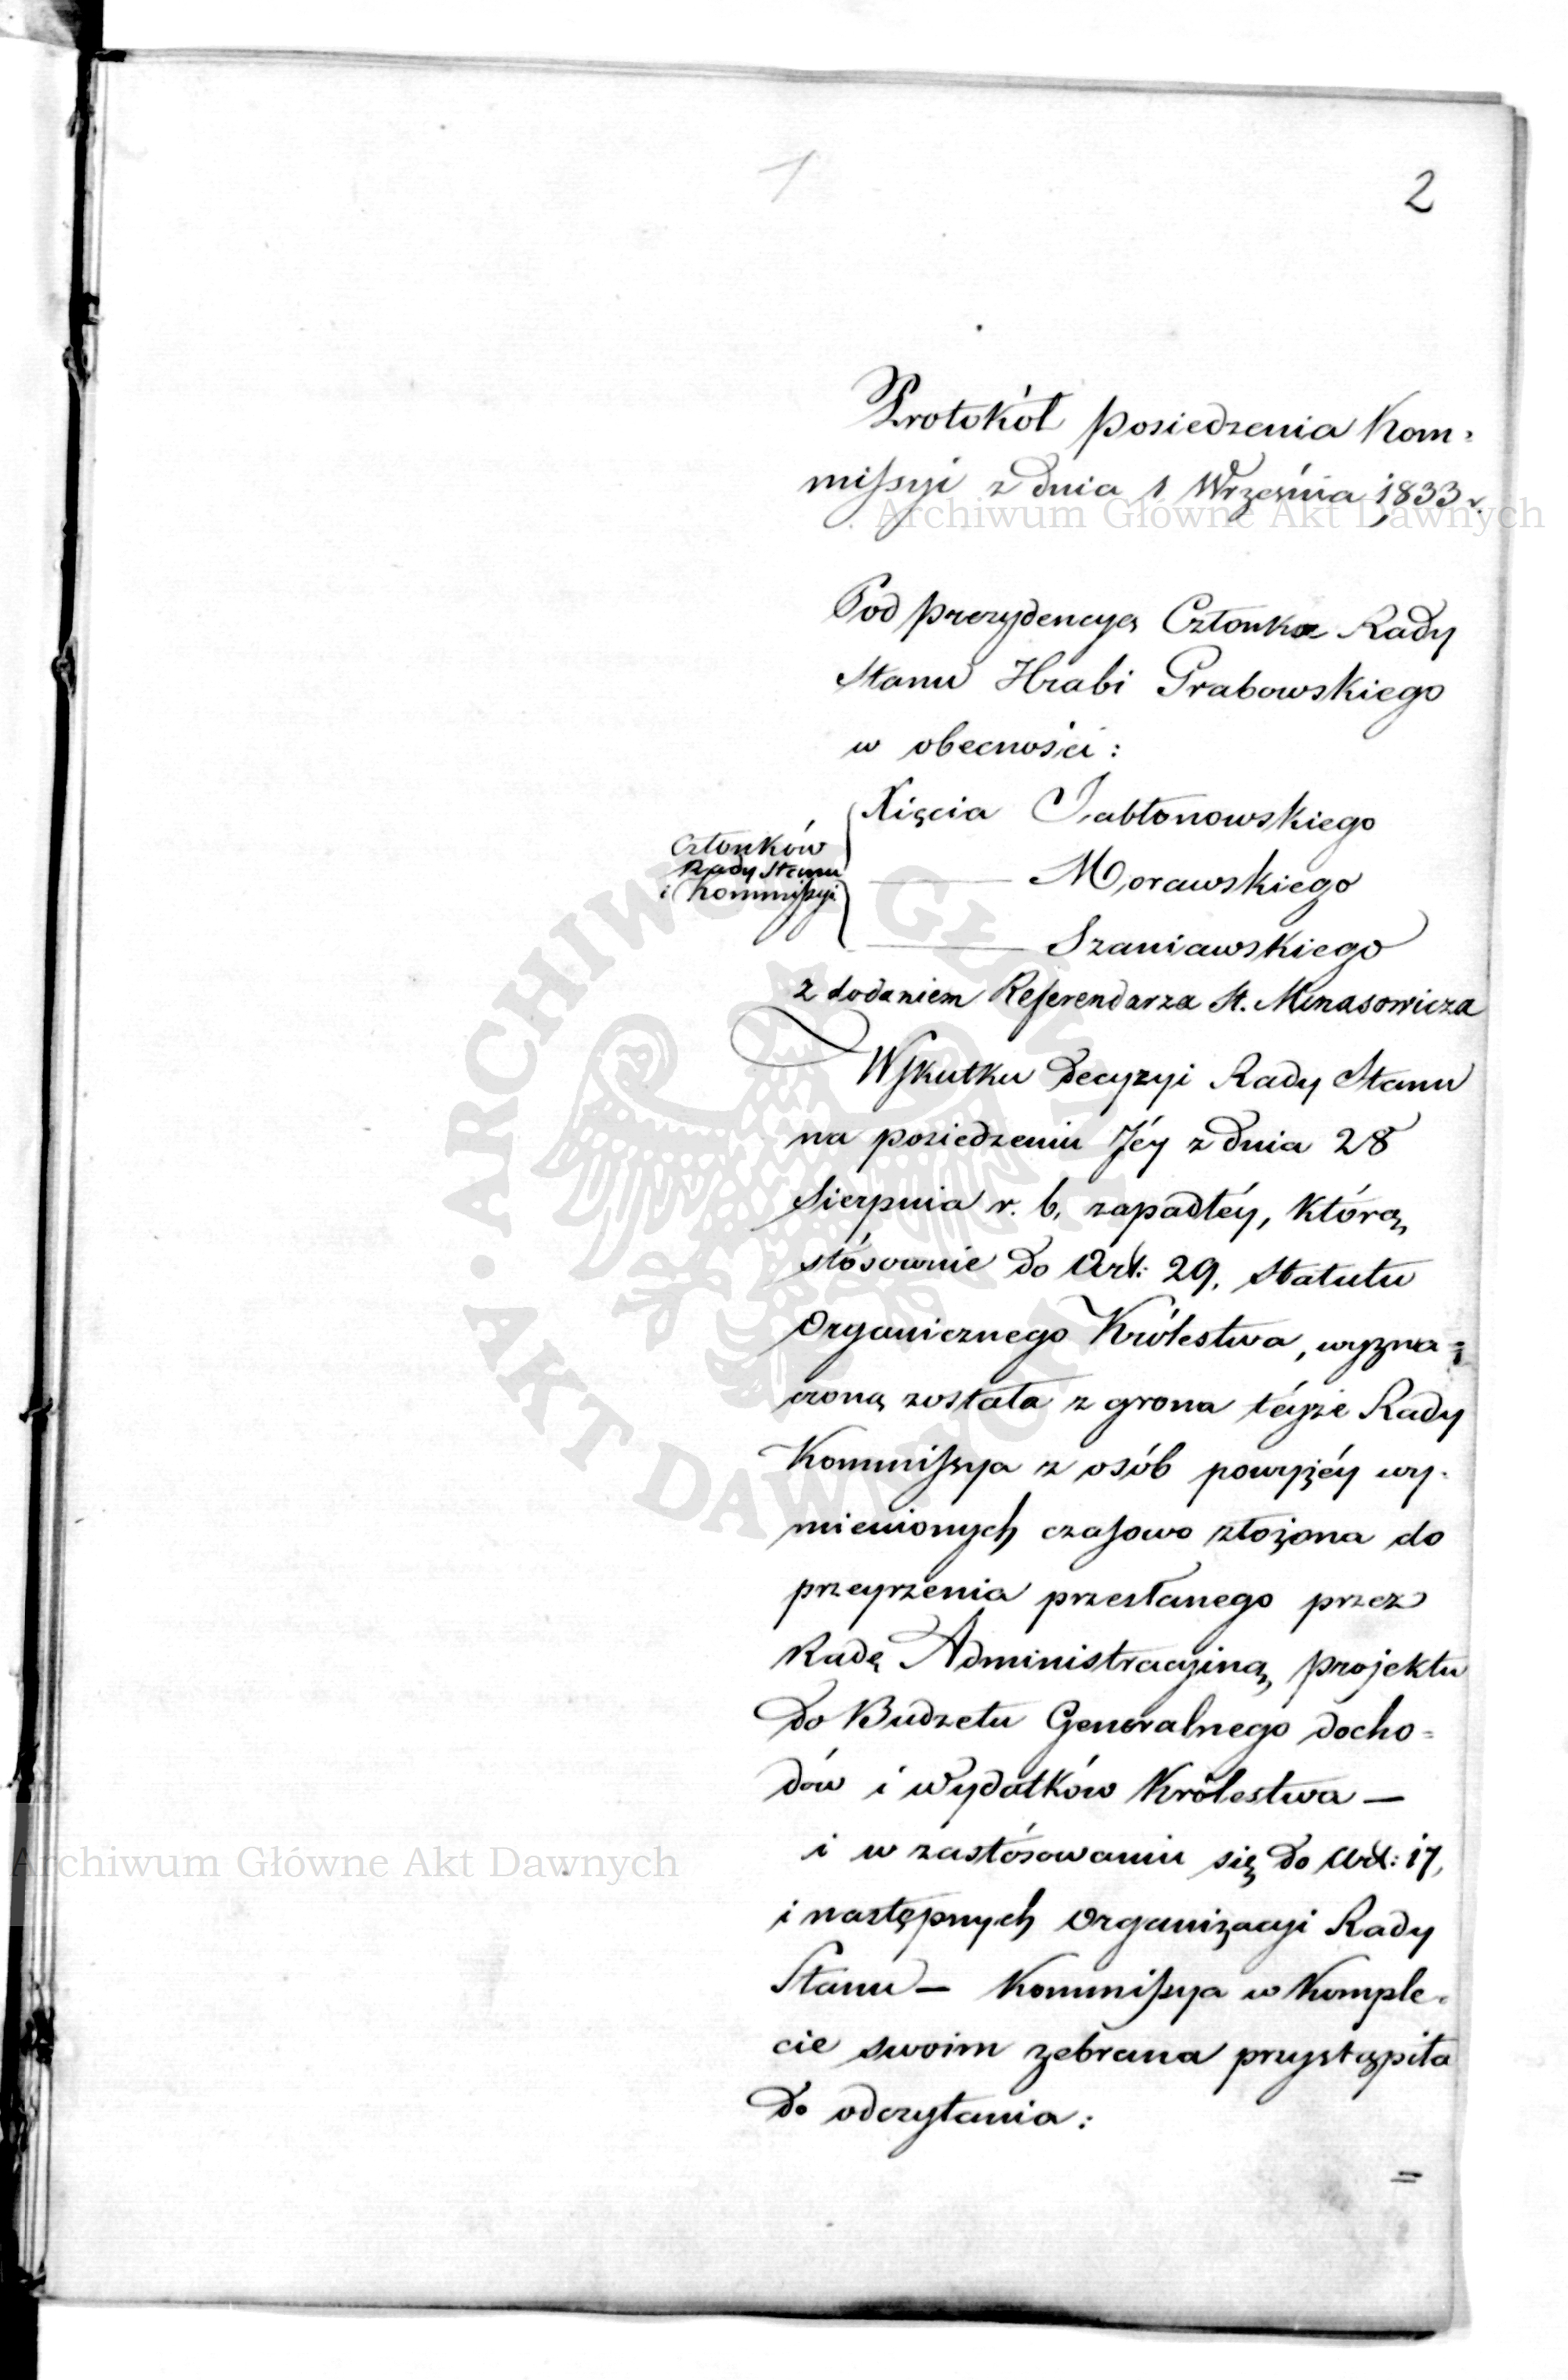 1
2
Protokół posiedzenia Kom=
missyi z dnia 1 Września 1833 r.
Pod prezydencyą Członka Rady
Stanu Hrabi Grabowskiego
w obecności:
Xięcia Jabłonowskiego
Członków
Rady Stanu
i Kommissyi
—— Morawskiego
—— Szaniawskiego
z dodaniem Referendarza St. Minasowicza
Wskutku decyzyi Rady Stanu
na posiedzeniu Jéy z dnia 28
Sierpnia r. b. zapadłéy, którą
stósownie do Art: 29. Statutu
Organicznego Królestwa, wyzna=
czoną została z grona téyże Rady
Kommissya z osób powyżéy wy=
mienionych czasowo złożona do
przeyrzenia przesłanego przez
Radę Administracyiną projektu
do Budżetu Generalnego docho=
dów i wydatków Królestwa —
i w zastósowaniu się do Art: 17,
i następnych Organizacyi Rady
Stanu — Kommissya w Komple=
cie swoim zebrana przystąpiła
do odczytania:
=
Archiwum Główne Akt Dawnych
Archiwum Główne Akt Dawnych
ARCHIWUM GŁÓWNE • AKT DAWNYCH